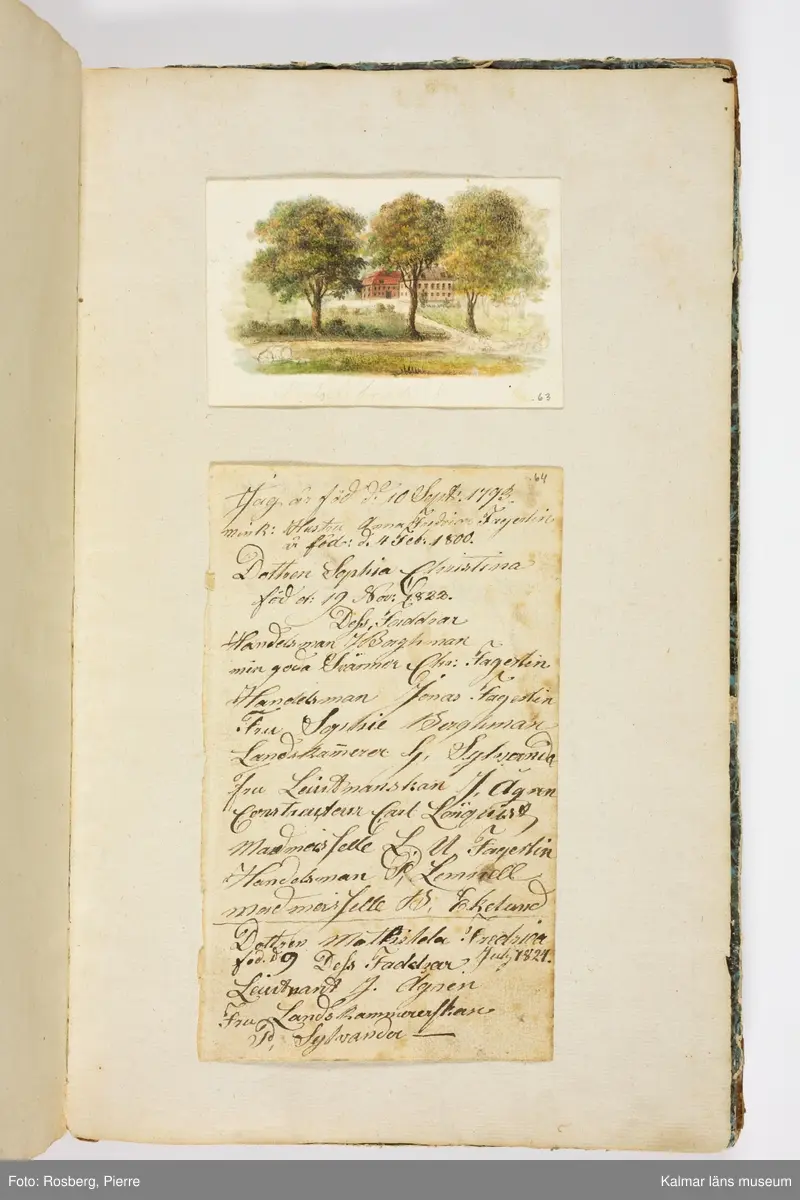 .63
.64
Jag är föd d: 10 Sept: 1793.
min k: Hustru Anna Fredrica Fagerlin
är född: d. 4 Feb: 1800.
Dottren Sophia Christina
föd et: 19 Nov: 1822.
Dess, Faddrar
Handelsman Berghman
min goda Svärmor Chr: Fagerlin
Handelsman Jonas Fagerlin
Fru Sophie Berghman
Landskamerer G, Sylvanda
Fru Leiutnanskan J, Ågren
Constructeur Carl Lönquist,
Madmoisselle L, U Fagerlin
Handelsman P, Lemnell
madmoisselle B, Ekelund
Dottren Mathilda Fredrica
föd. d 9 July 1824.
Dess Faddrar
Leiutnant J. Ågren
Fru Landskammererskan
Sylvander —
Foto: Rosberg, Pierre
Kalmar läns museum